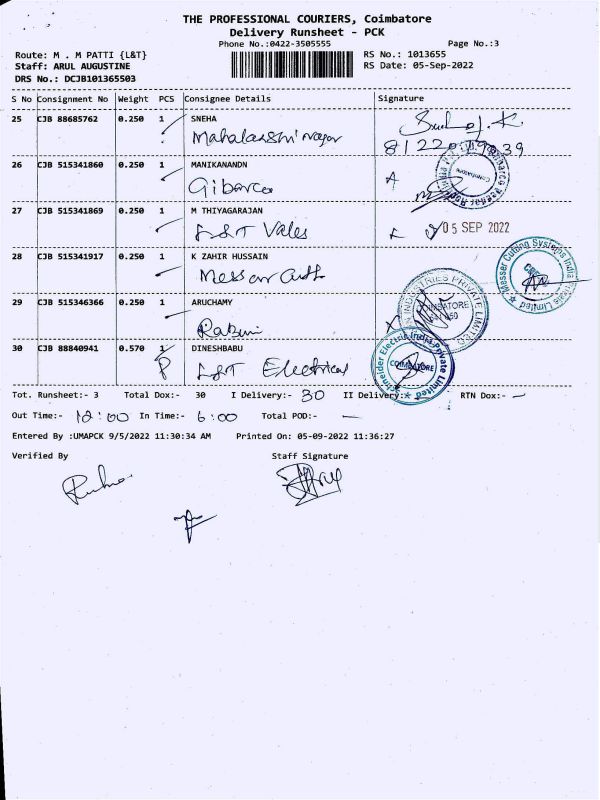 THE PROFESSIONAL COURIERS, Coimbatore
Delivery Runsheet - PCK
Phone No.:0422-3505555 Page No.:3
Route: M . M PATTI {L&T} RS No.: 1013655
Staff: ARUL AUGUSTINE RS Date: 05-Sep-2022
DRS No.: DCJB101365503
S No Consignment No Weight PCS Consignee Details Signature
25 CJB 88685762 0.250 1 SNEHA
Mahalakshmi Nagar
26 CJB 515341860 0.250 1 MANIKANANDN
Gibarco
27 CJB 515341869 0.250 1 M THIYAGARAJAN
L&T Vales 05 SEP 2022
28 CJB 515341917 0.250 1 K ZAHIR HUSSAIN
Messer Cutting Systems India Private Limited
29 CJB 515346366 0.250 1 ARUCHAMY
INDUSTRIES PRIVATE LIMITED
30 CJB 88840941 0.570 1 DINESHBABU
P L&T Electrical
Schneider Electric India Private Limited
COIMBATORE
Tot. Runsheet:- 3 Total Dox:- 30 I Delivery:- 30 II Delivery:- RTN Dox:- —
Out Time:- 12:00 In Time:- 6:00 Total POD:- —
Entered By :UMAPCK 9/5/2022 11:30:34 AM Printed On: 05-09-2022 11:36:27
Verified By Staff Signature